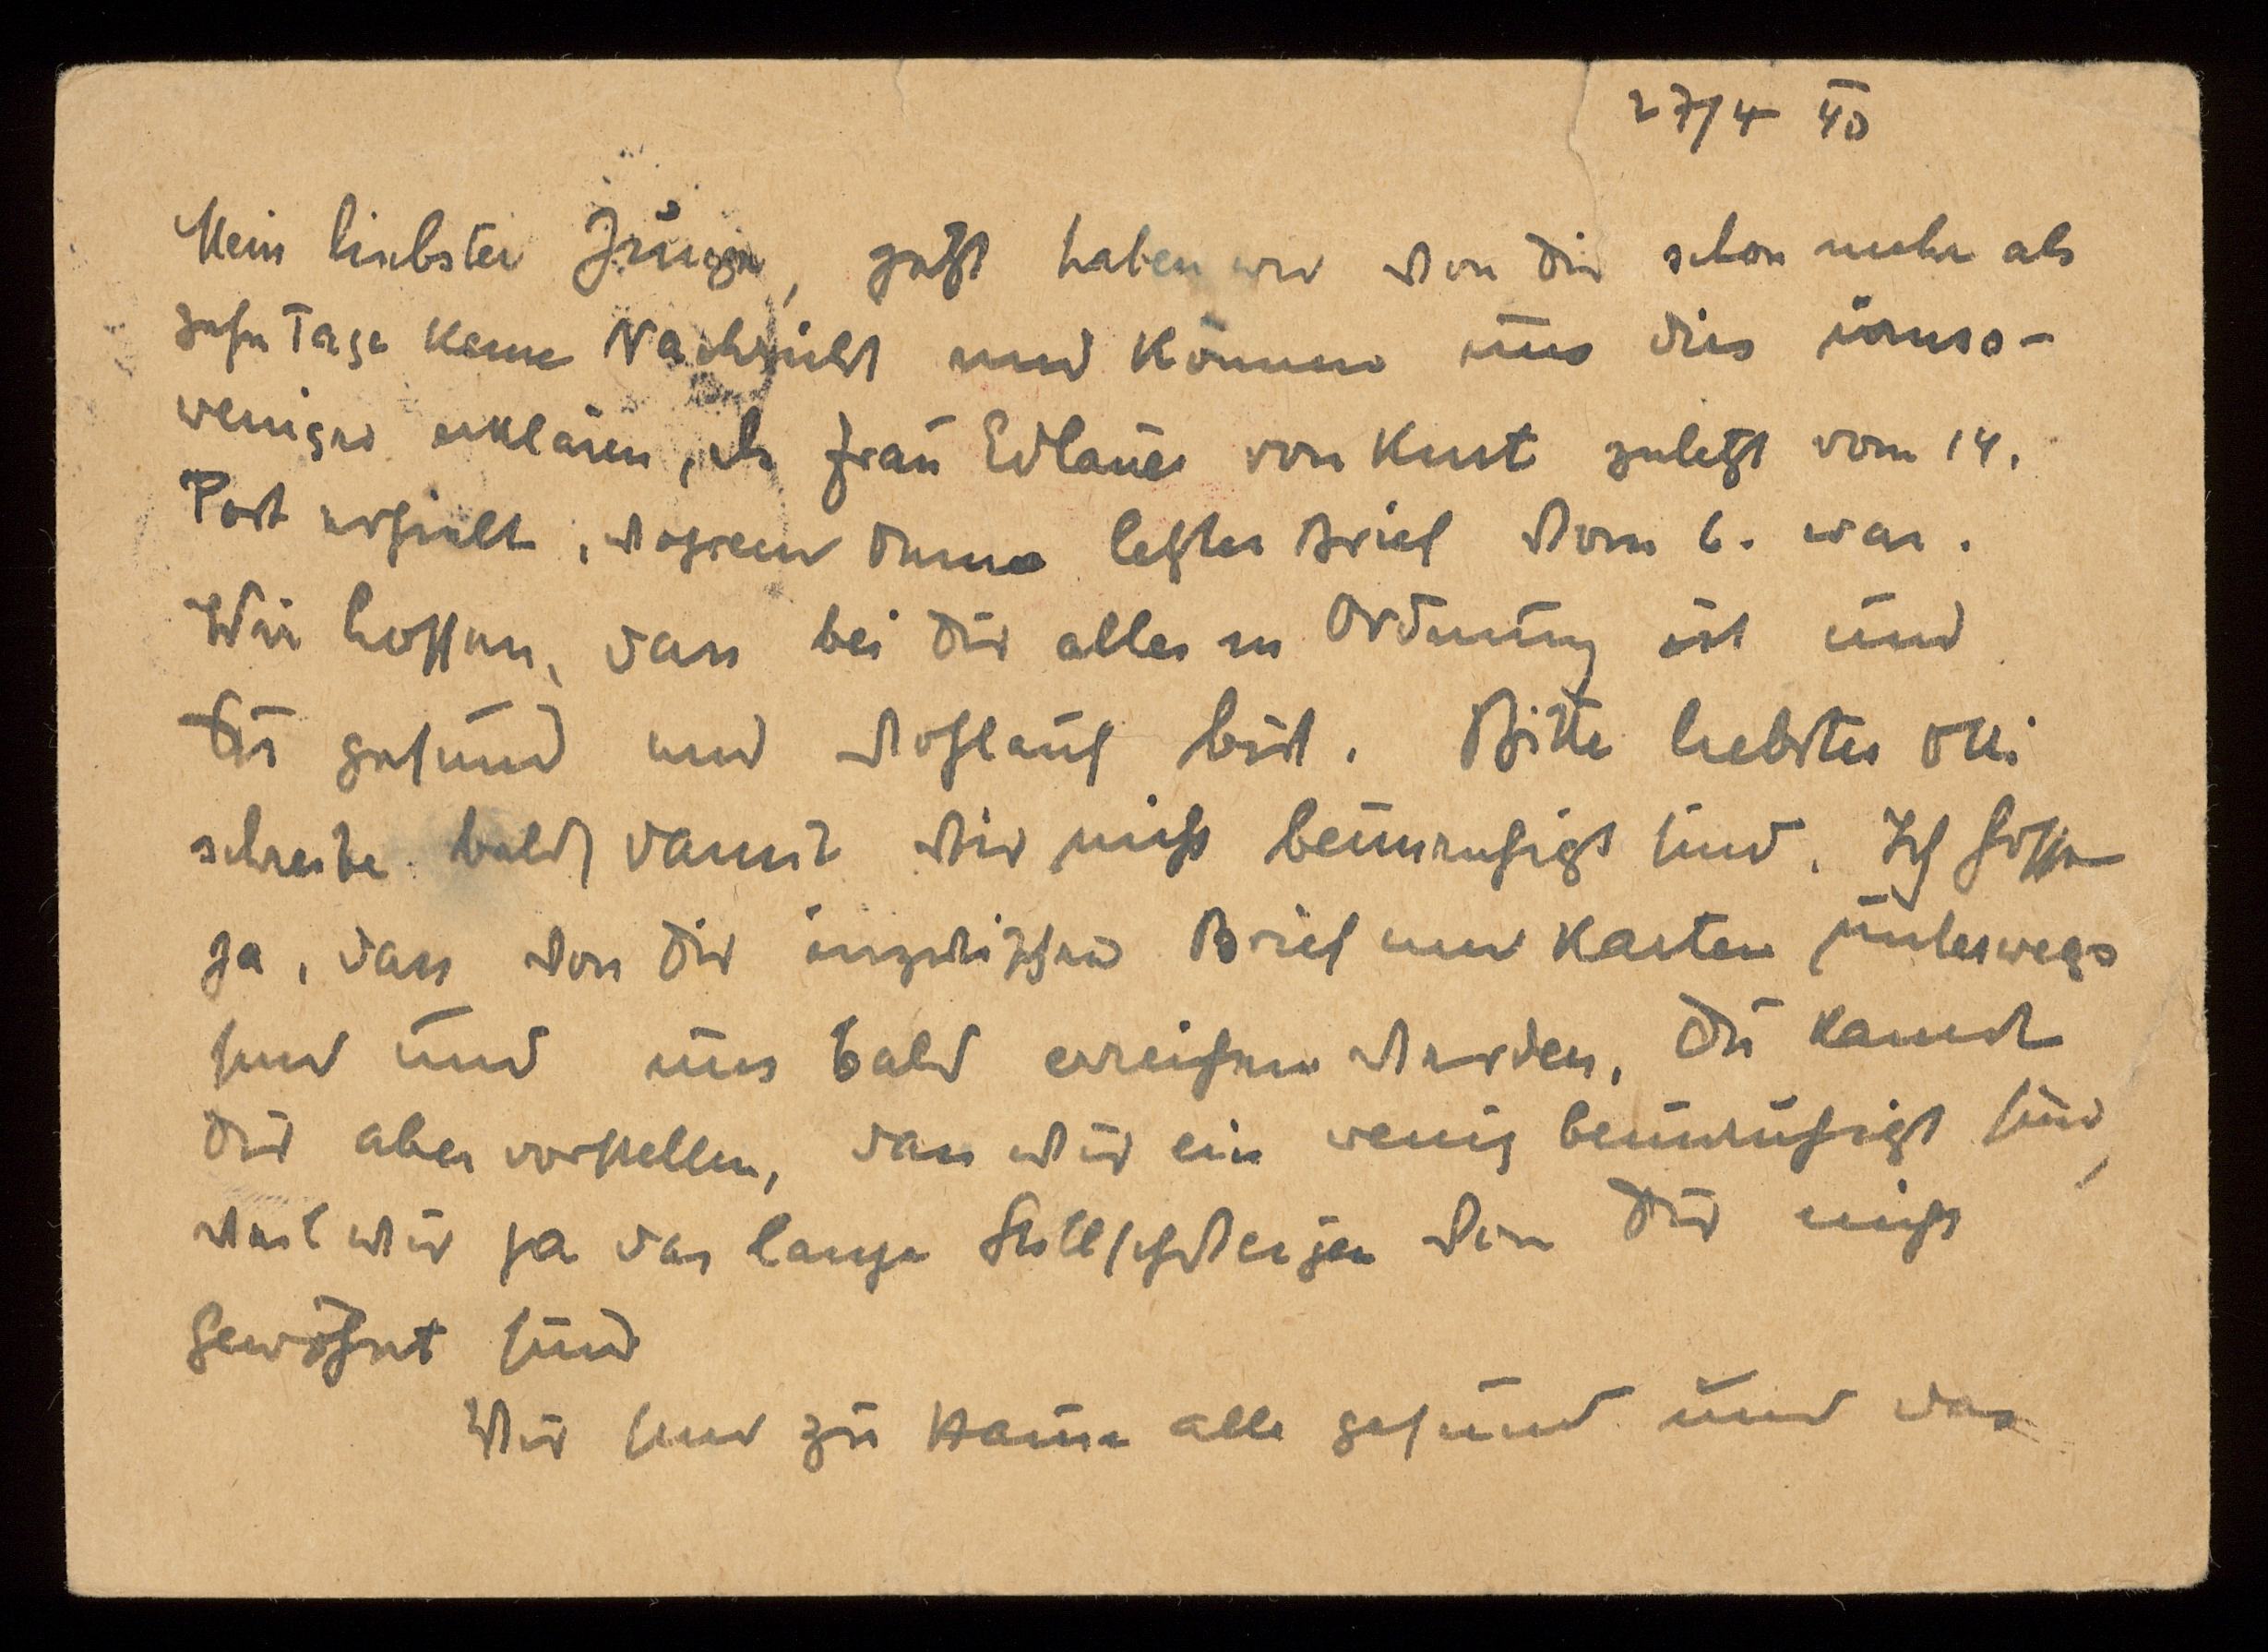 27/4 40
Mein liebster Junge, jetzt haben wir von Dir schon mehr als
zehn Tage keine Nachricht und können uns dies umso-
weniger erklären, als Frau Edlauer von Kurt zuletzt vom 14.
Post erhielt, während Dein letzter Brief vom 6. war.
Wir hoffen, dass bei Dir alles in Ordnung ist und
Du gesund und wohlauf bist. Bitte liebster Otti
schreibe bald damit wir nicht beunruhigt sind. Ich hoffe
ja, dass von Dir inzwischen Brief und Karten unterwegs
sind und uns bald erreichen werden. Du kannst
Dir aber vorstellen, dass wir ein wenig beunruhigt sind,
weil wir ja das lange Stillschweigen von Dir nicht
gewöhnt sind
Wir sind zu Hause alle gesund und das